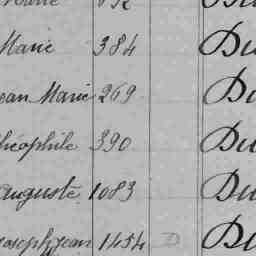 Marie 384 Du
ean Marie 269 Du
héophile 390 Du
auguste 1083 Du
Joseph Jean 1454 D Du